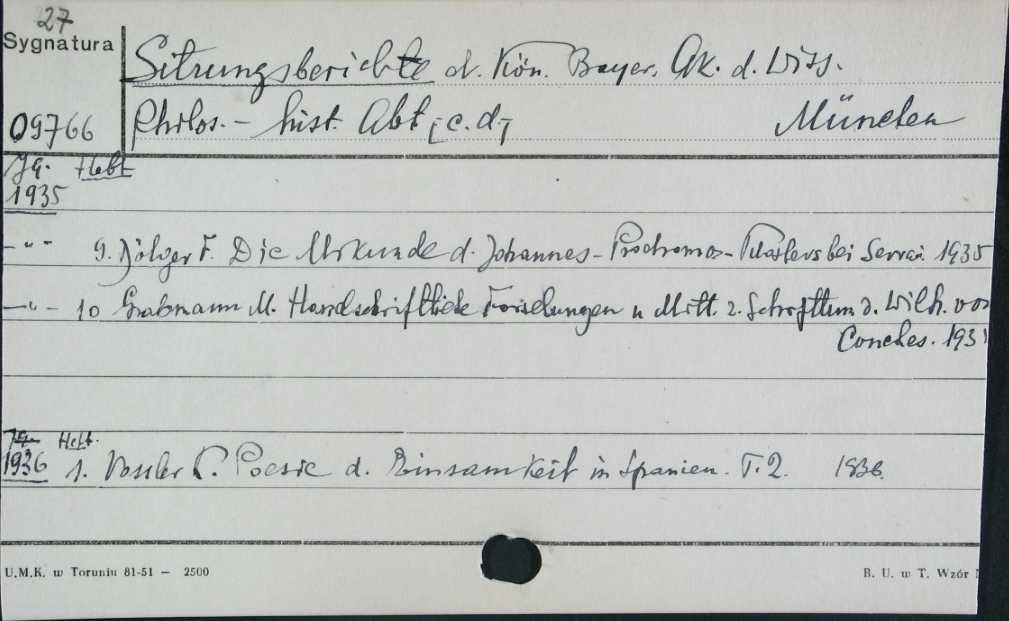 27
Sygnatura
Sitzungsberichte d. Kön. Bayer. Ak. d. Wiss.
09766
Philos. - hist. Abt. [c.d.] München
Jg. Heft
1935
-"- 9. Dölger F. Die Urkunde d. Johannes-Prodromos-Klosters bei Serrai 1935
-"- 10 Grabmann M. Handschriftliche Forschungen u Mitt. z. Schrifttum d. Wilh. von
Conches. 193
Jg. Heft.
1936 1. Vossler K. Poesie d. Einsamkeit in Spanien. T. 2. 1936.
U.M.K. w Toruniu 81-51 — 2500
B. U. w T. Wzór